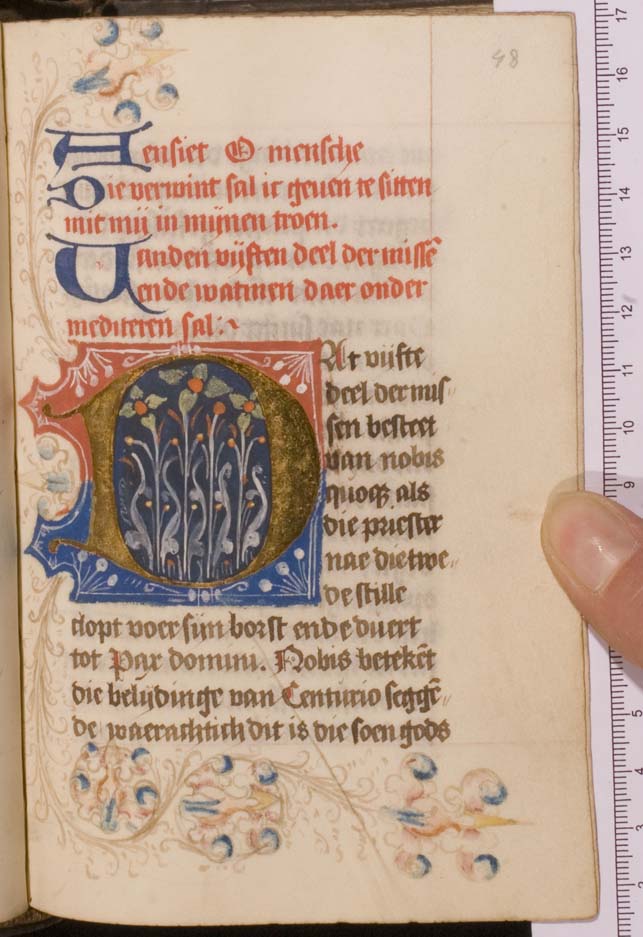 48
Aensiet O mensche
Die verwint sal ic geuen te sitten
mit mij in mijnen troen.
Vanden vijften deel der missē
ende watmen daer onder
mediteren sal:~
DAt vijfte
deel der mis-
sen besteet
van nobis
quoqꝫ als
die priester
nae die twe-
de stille
clopt voer sijn borst ende duert
tot Pax domini. Nobis beteket̄
die belijdinge van Centurio seggē-
de waerachtich dit is die soen gods
17
16
15
14
13
12
11
10
9
5
4
3
2